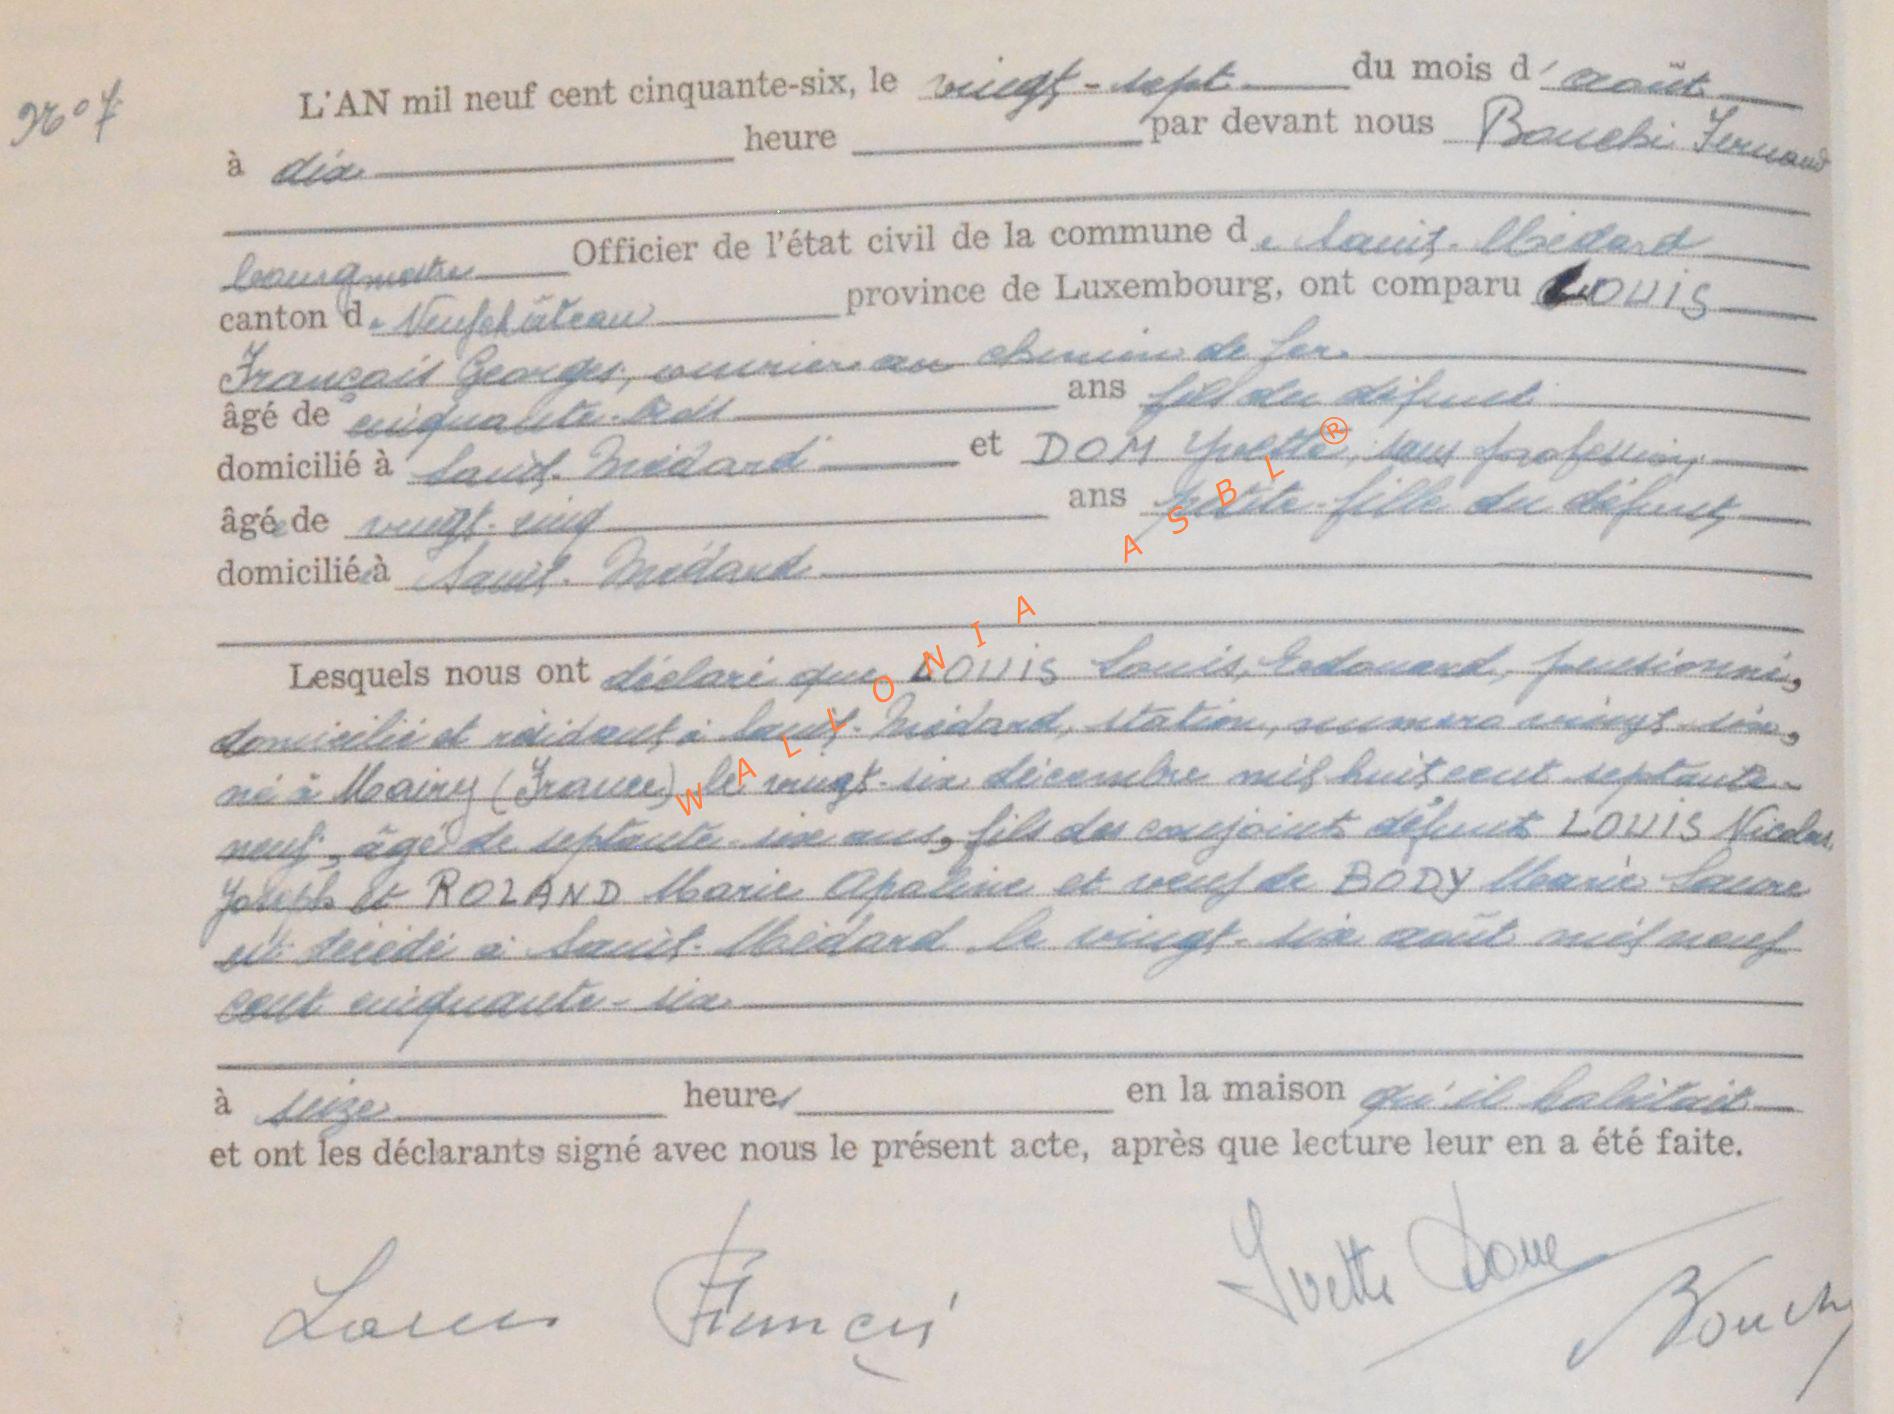 N° 7
L'AN mil neuf cent cinquante-six, le vingt-sept du mois d' août
à dix heure par devant nous Bouchi Fernand
bourgmestre Officier de l'état civil de la commune de Saint-Médard
canton de Neufchâteau province de Luxembourg, ont comparu LOUIS
François Georges, ouvrier au chemin de fer.
âgé de cinquante-trois ans fils du défunt
domicilié à Saint-Médard et DOM Yvette, sans profession,
âgée de vingt-cinq ans petite-fille du défunt,
domiciliée à Saint-Médard
Lesquels nous ont déclaré que LOUIS Louis, Edouard, pensionné,
domicilié et résidant à Saint-Médard, station, numéro vingt-six,
né à Mairy (France) le vingt-six décembre mil huit cent septante-
neuf, âgé de septante-six ans, fils des conjoints défunts LOUIS Nicolas
Joseph et ROLAND Marie Apoline et veuf de BODY Marie Laure
est décédé à Saint-Médard le vingt-six août mil neuf
cent cinquante-six
à seize heures en la maison qu'il habitait
et ont les déclarants signé avec nous le présent acte, après que lecture leur en a été faite.
Louis François Yvette Dom
Bouchi
WALLONIA ASBL®